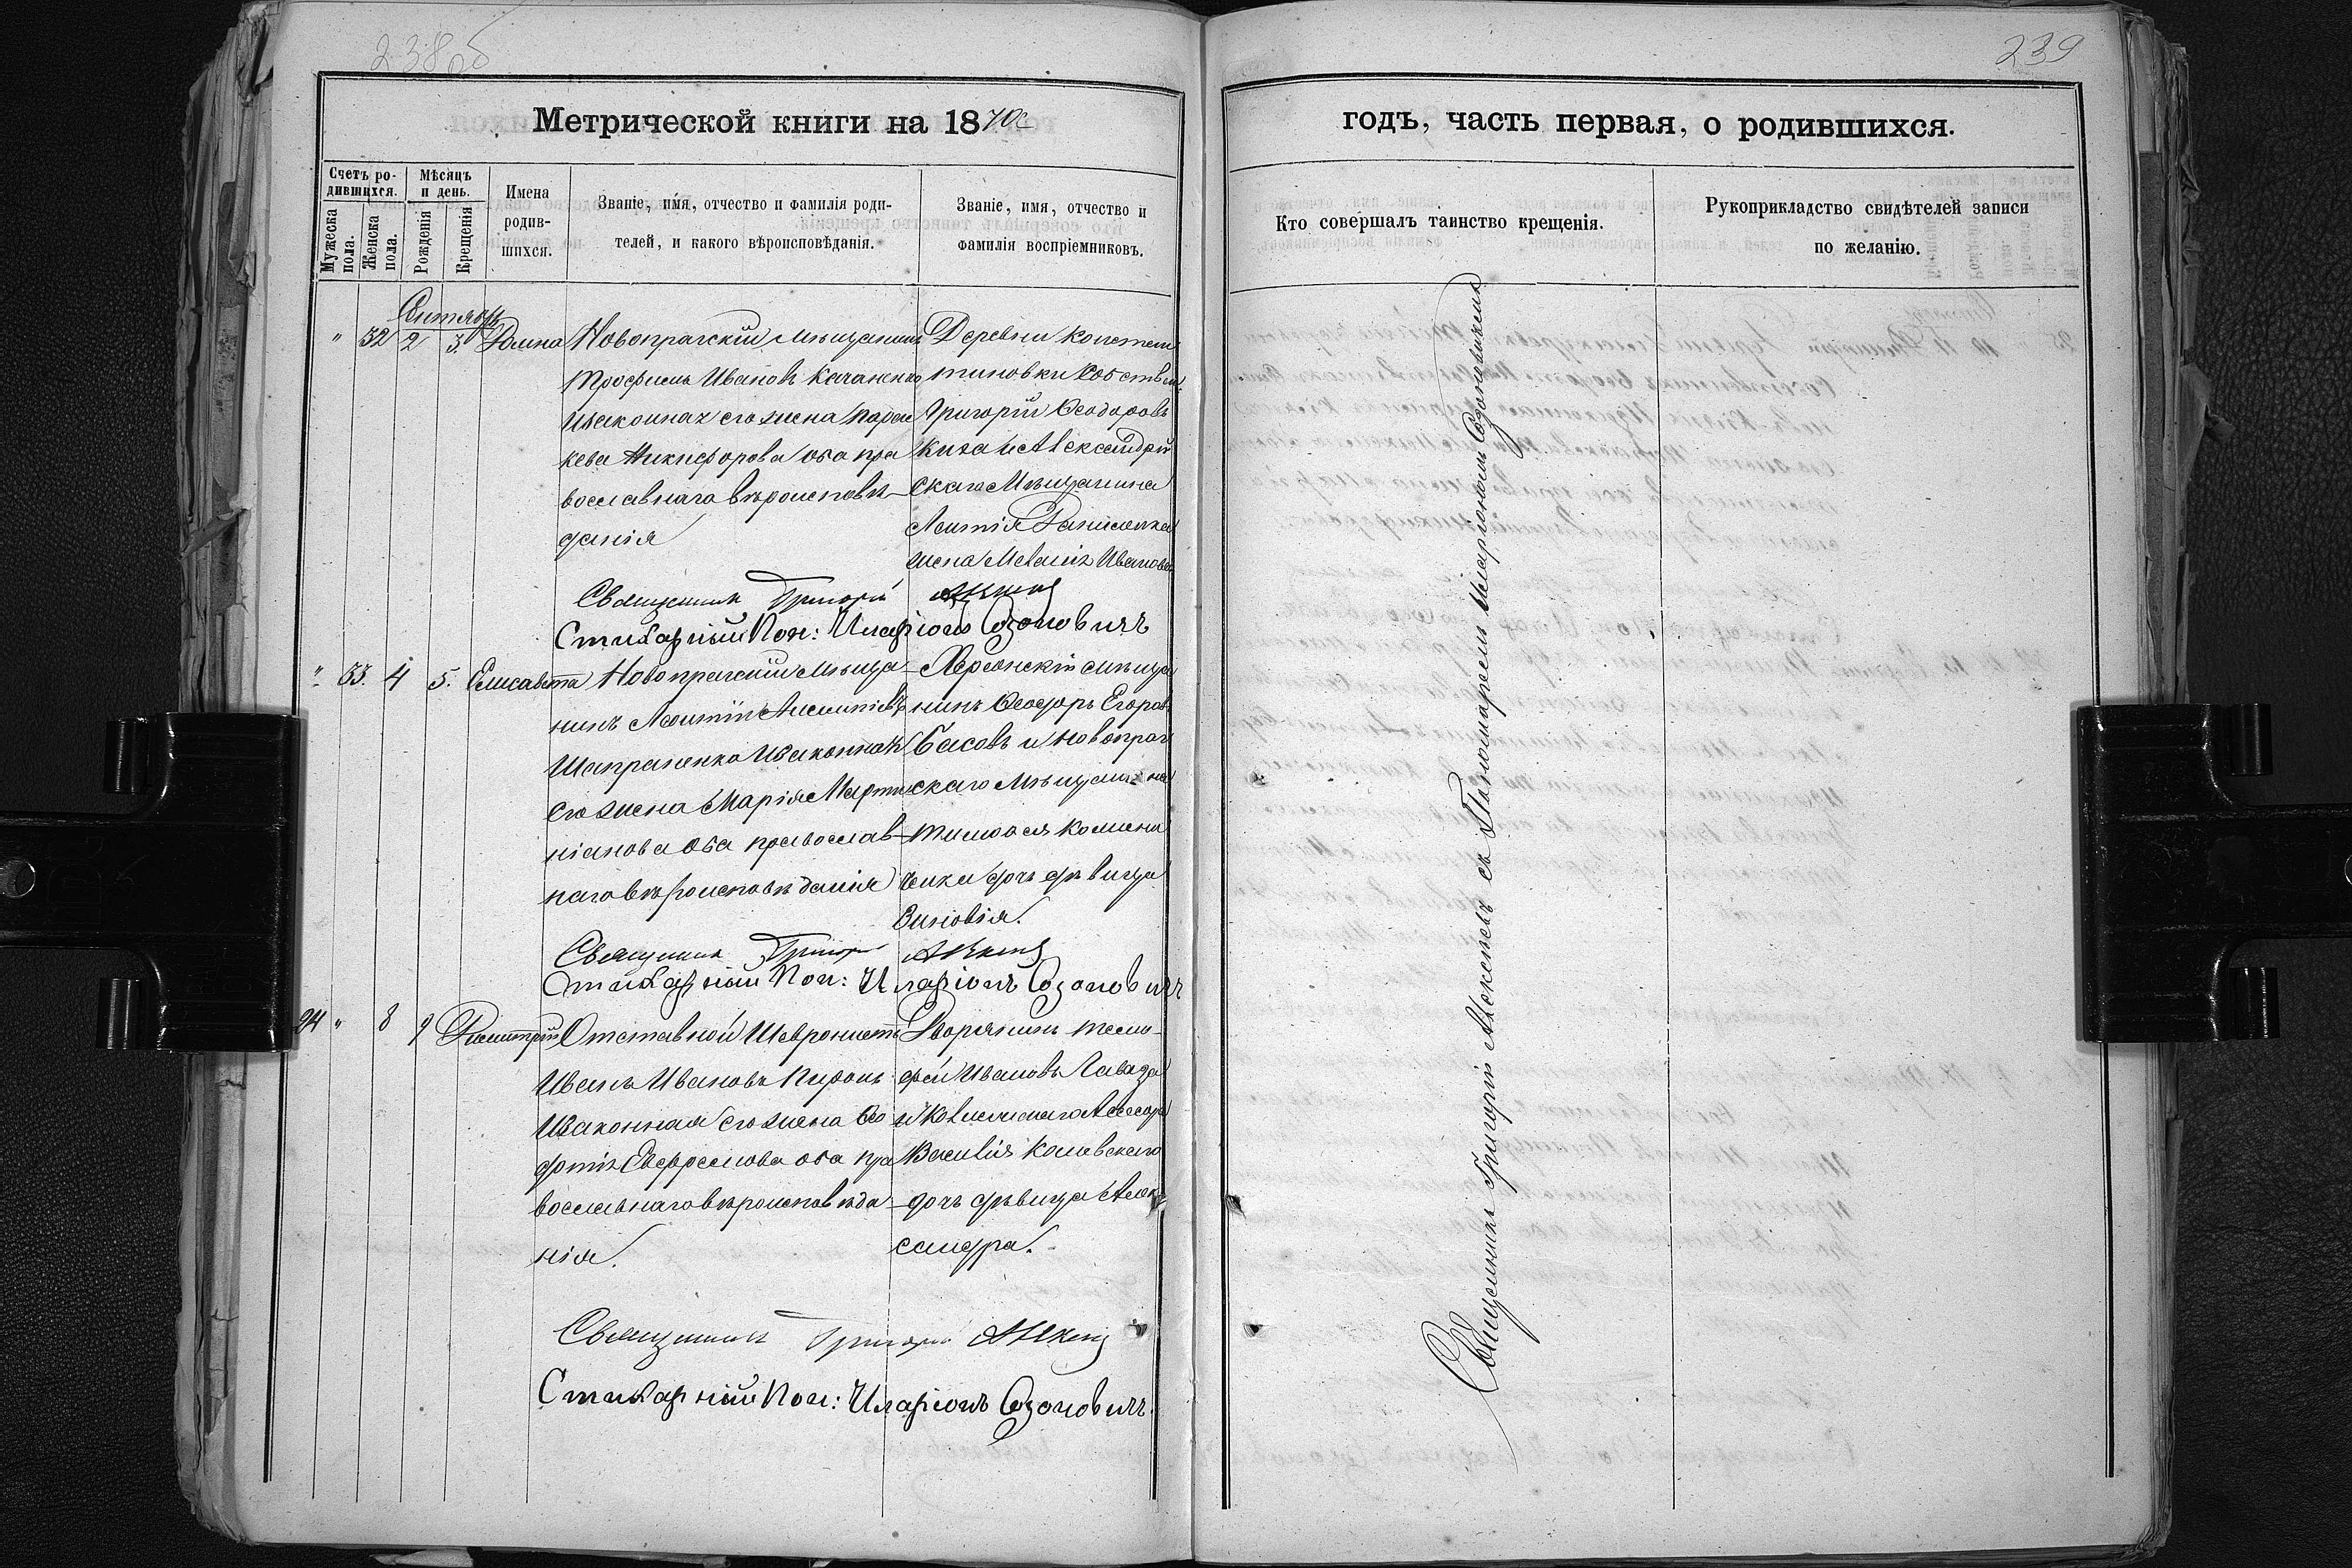 238об
Метрической книги на 1870й
Счетъ ро-
дившихся.
Мѣсяцъ
и день.
Мужеска
пола.
Женска
пола.
Рожденія
Крещенія
Имена
родив-
шихся.
Званіе, имя, отчество и фамилія роди-
телей, и какого вѣроисповѣданія.
Званіе, имя, отчество и
фамилія воспріемниковъ.
Сентябрь
" 32 2 3.
Новопражскій мѣщанинъ
Трофимъ Ивановъ
Изаконная его жена Парас
кева Никифорова оба пра
вославнаго вѣроисповѣ
данія
Деревни Констан
тиновки Собствен:
Григорій Ѳеодоровъ
Киза и Александрій
скаго Мѣщанина
Леонтія Данисенка
жена Меланія Иванова
Священникъ Григорій
Стихарный Пон: Иларіонъ Созоновичъ
" 33. 4 5. Елисавета
Новопражскій мѣща
нинъ Леонтій
Изаконная
его жена Марія Марти
ніанова оба православ
наго вѣроисповѣданія
Херсонскій мѣща
нинъ Ѳеодоръ Егоровъ
Басовъ и Новопраж
скаго Мѣщанина
Тимоѳея
дочь дѣвица
Зиновія.
Священникъ Григорій
Стихарный Пон: Иларіонъ Созоновичъ
24 " 8 9 Димитрій
Отставной Шевронистъ
Иванъ Ивановъ
Изаконная его жена Ѳео
Евфремова оба пра
вославнаго вѣроисповѣда
нія.
Дворянинъ Тимо
фей Ивановъ
и
Василія
дочь дѣвица Алек
сандра.
Священникъ Григорій
Стихарный Пон: Иларіонъ Созоновичъ
239
годъ, часть первая, о родившихся.
Кто совершалъ таинство крещенія.
Рукоприкладство свидѣтелей записи
по желанію.
Священникъ Григорій съ Пономаремъ Иларіономъ Созоновичемъ